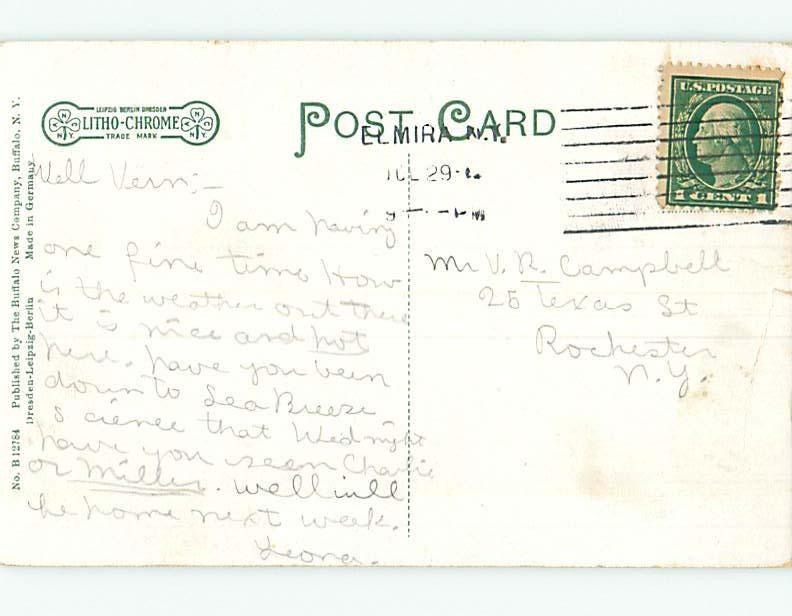 No. B 12784 Published by The Buffalo News Company, Buffalo, N. Y.
Dresden-Leipzig-Berlin Made in Germany.
LEIPZIG BERLIN DRESDEN
LITHO-CHROME
TRADE MARK
POST CARD
ELMIRA N.Y.
JUL 29
U.S. POSTAGE
1 CENT 1
Well Vern:—
I am having
one fine time How
is the weather out there
it is nice and hot
here. have you been
down to Sea Breeze
science that Wed night
have you seen Charlie
or Miller. well will
be home next week.
Leona.
Mr V. R. Campbell
25 Texas St
Rochester
N.Y.